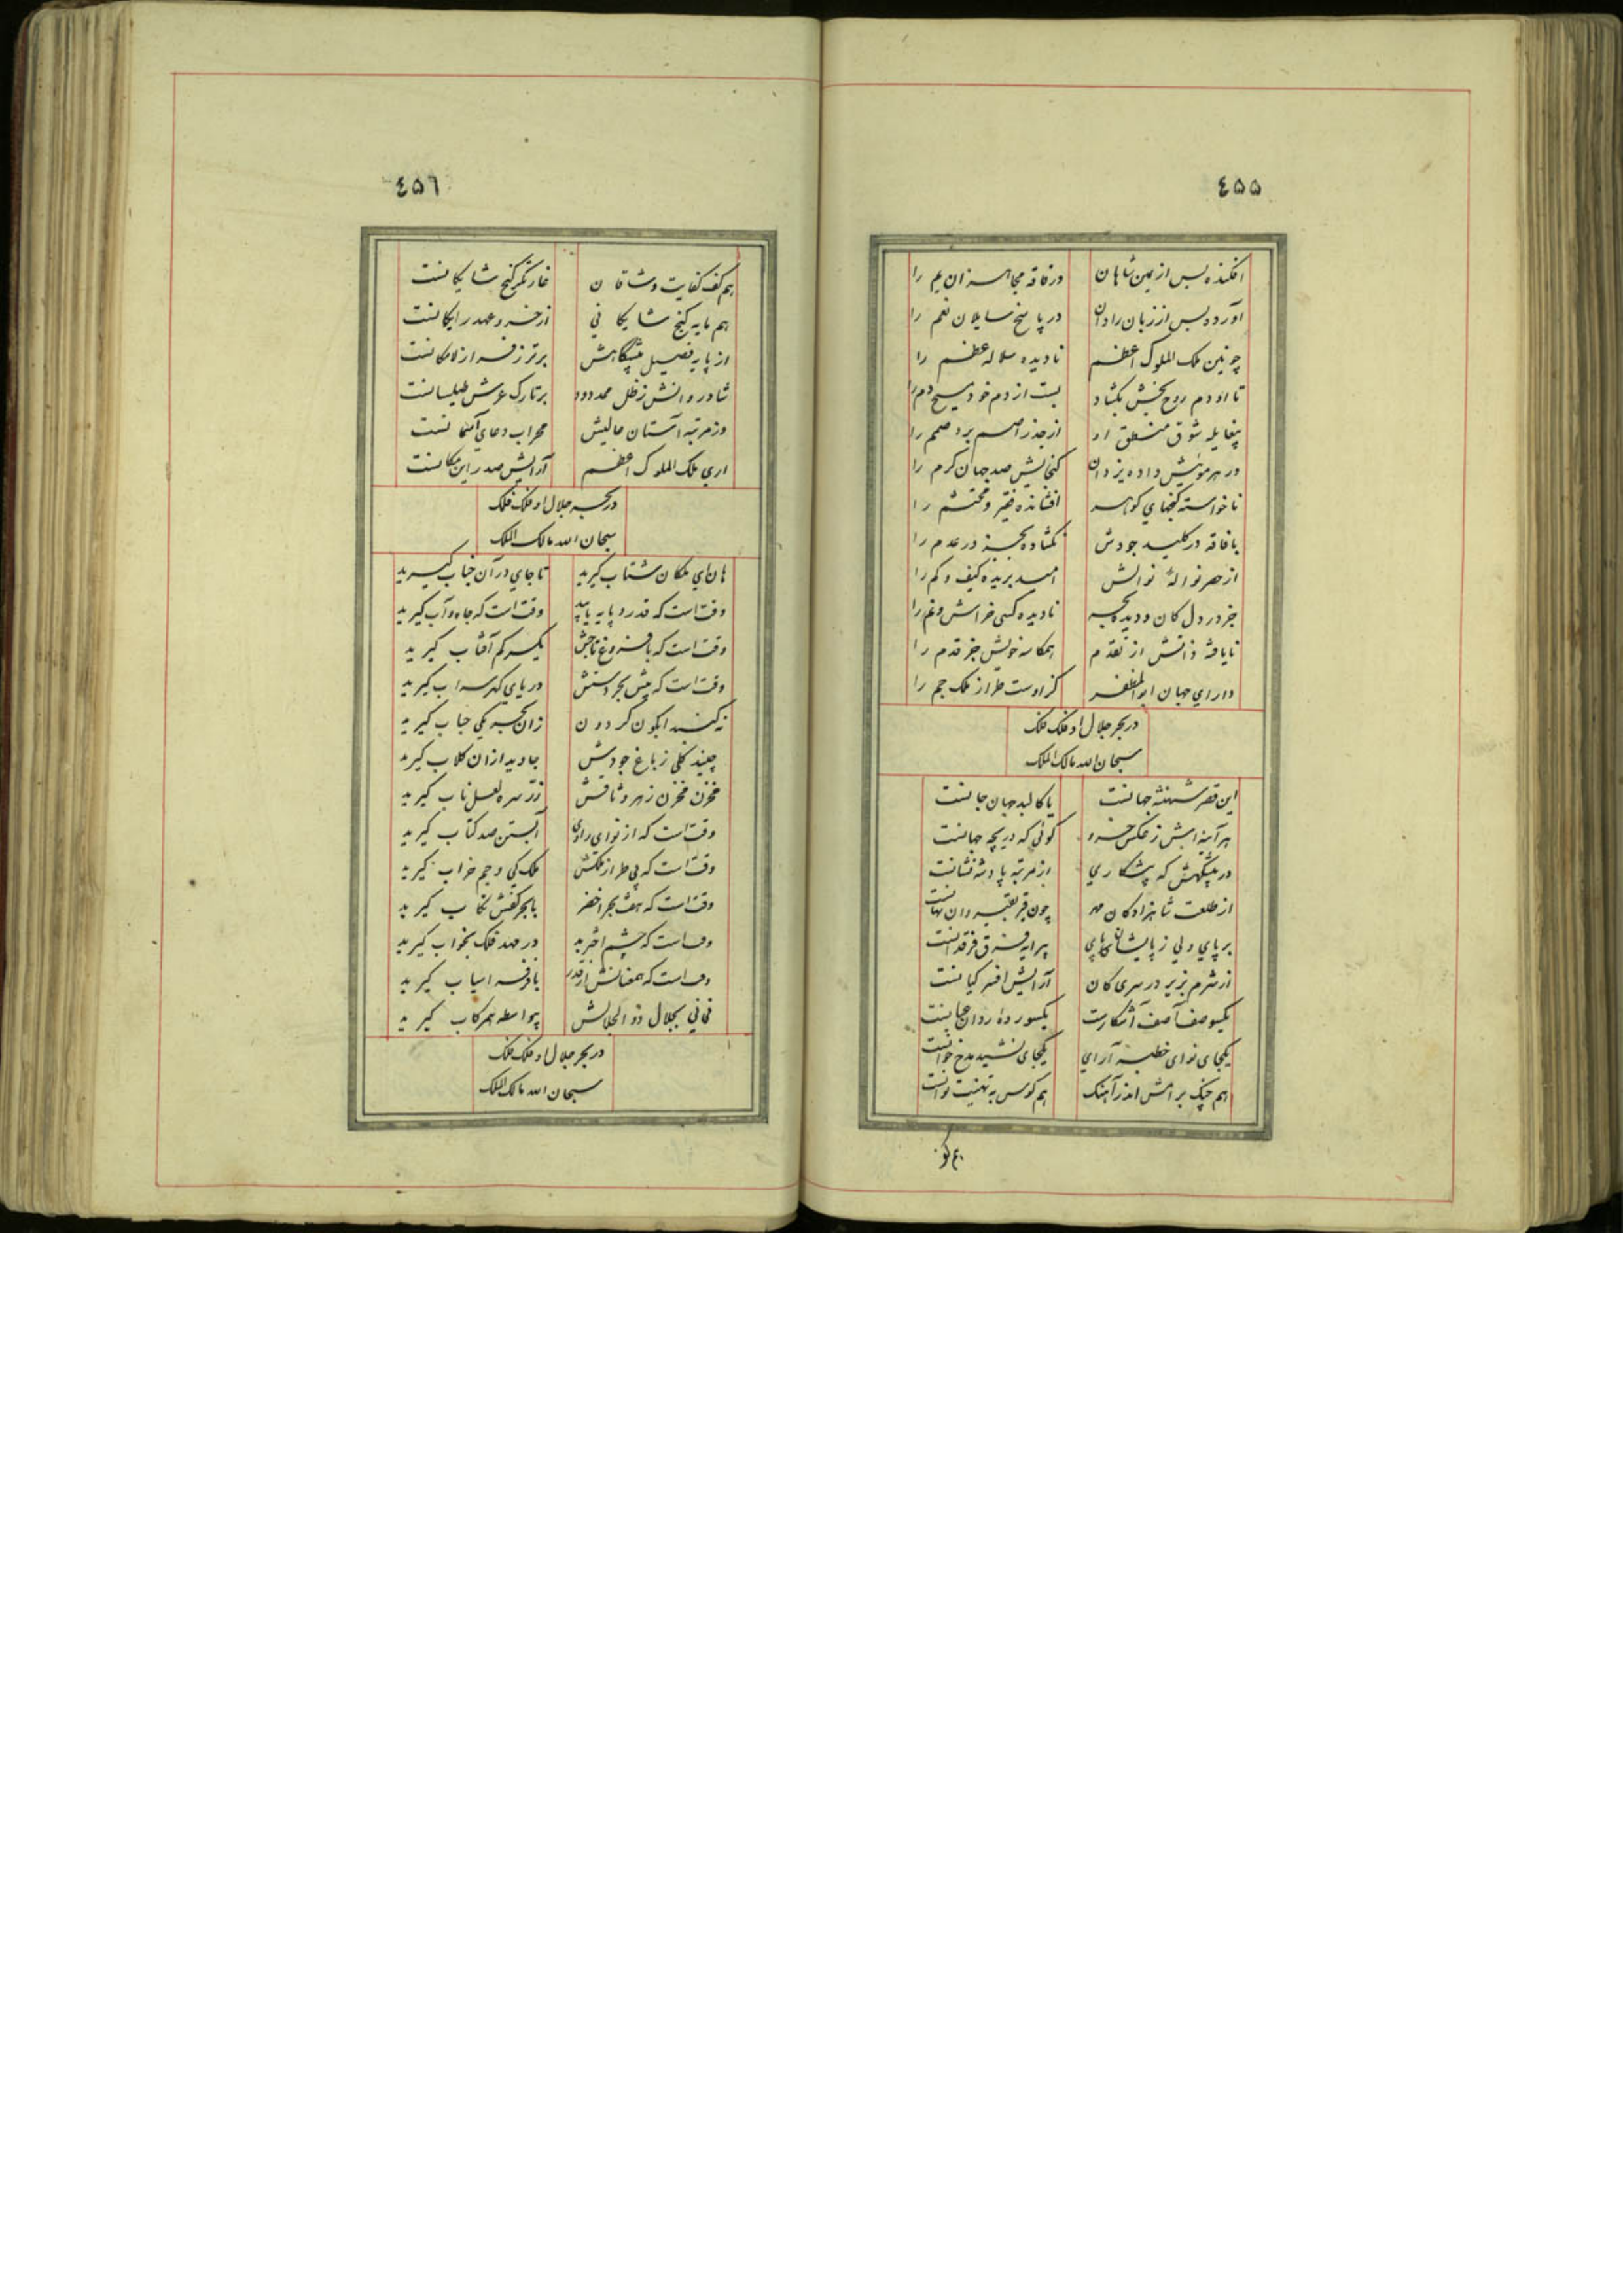 ٤۵۵
افکنده بس از یمین شاهان در فاقه مجاهزان یم را
آورده بس از زبان رادان در پاسخ سایلان نعم را
چونین ملک الملوک اعظم نادیده سلاله عظم را
تا او دم روح بخش بکشاد بست از دم خود مسیح دم را
شوق منطق او از جذر اصم برد صمم را
در هر مویش داده یزدان کنجایش صد جهان کرم را
ناخواسته کنجهای کوهر افشانده فقیر و محتشم را
با فاقه در کلید جودش نکشاده بجز در عدم را
از حصر نواله نوالش امید بریده کیف و کم را
جز در دل کان و دیده بحر نادیده کسی خراش و غم را
نایافته دانش از تقدم همکاسه خویش جز قدم را
دارای جهان ابوالمظفر کز اوست طراز ملک جم را
در بحر جلال او فلک فلک
سبحان الله مالک الملک
این قصر شهنشه جهانست یا کالبد جهان جانست
هر آینه ایش ز عکس خسرو کوئی که دریچه جهانست
در پیشکهش که پیشکاری از مرتبه پادشه نشانست
از طلعت شاهزادکان مه چون
بر پای ولی ز پایشان پیرایه فرق فرقدانست
از شرم بزیر در سری کان آرایش افسر کیانست
یکسو صف آصف آشکارست یکسور ده روان جانست
یکجای نوای خطبه آرای یکجای نشید مدح خوانست
هم چنک برامش اندر آهنک هم کوس به تهنیت نوانست
هم کف
٤۵٦
هم کف کفایت وشاقان غارتکر کنج شایکانست
هم مایه کنج شایکانی از خسرو عهد رایکانست
از پایه فصیل پیشکاهش برتر ز فراز لامکانست
شادروانش ز ظل ممدود بر تارک عرش طیلسانست
وز مرتبه آستان عالیش محراب دعای آسمانست
اری ملک الملوک اعظم آرایش صدر این مکانست
در بحر جلال او فلک فلک
سبحان الله مالک الملک
هان ای ملکان شتاب کیرید تا جای در آن جناب کیرید
وقت است که قدر و پایه یابید وقت است که جاه و آب کیرید
وقت است که با فروغ تاجش یکسر کم آفتاب کیرید
وقت است که پیش بحر دستش دریای کهر سراب کیرید
نه کنبد ابکون کردون زان بحر یکی حباب کیرید
چیند کلی ز باغ جودش جاوید از ان کلاب کیرید
مخزن مخزن زهر وثاقش زر سره لعل ناب کیرید
وقت است که از نوای رادی آبستن صد کتاب کیرید
وقت است که بی طراز ملکش ملک کی و جم خراب کیرید
وقت است که هفت بحر اخضر با بحر کفش کیرید
وقت است که چشم اختر بد در مهد فلک بخواب کیرید
وقت است که همعنانش از قدر با فر اسیاب کیرید
فانی بجلال ذو الجلالش بیواسطه همرکاب کیرید
در بحر جلال او فلک فلک
سبحان الله مالک الملک